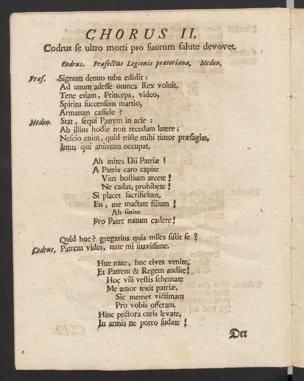 CHORUS II.
Codrus se ultro morti pro suorum salute devovet.
Codrus. Præfectus Legionis prætorianæ, Medon,
Præf. Signum denuo tuba edidit:
Ad unum adesse omnes Rex voluit,
Tene etiam, Princeps, video,
Spiritu succensum martio,
Armatum casside?
Medon. Stat, sequi Patrem in acie:
Ab illius hodie non recedam latere;
Nescio enim, quid triste mihi timor præsagiat,
Intus qui animum occupat.
Ah mites Dii Patriæ!
A Patris caro capite
Vim hostium arcete!
Ne cadat, prohibete!
Si placet sacrificium,
En, me mactate filium!
Ah sinite
Pro Patre natum cadere!
Quid hoc? gregarius quis miles sistit se?
Codrus, Patrem vides, nate mi suavissime.
Huc nate, huc cives venite,
Et Patrem & Regem audite!
Hoc vili vestis schemate
Me amor texit patriæ,
Sic memet victimam
Pro vobis offeram.
Hinc pectora curis levate,
In armis ne porro sudate!
Der